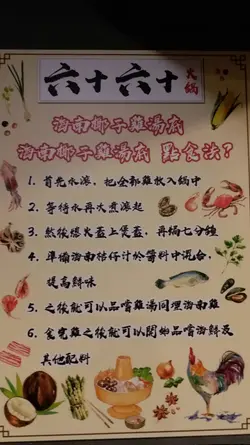 六十六十火鍋
海南椰子雞湯底
海南椰子雞湯底 點食法?
1. 首先水滾，把全部雞放入鍋中
2. 等待水再次煮滾起
3. 然後熄火蓋上煲蓋，再焗七分鐘
4. 準備海南桔仔汁於醬料中混合，
提高鮮味
5. 之後就可以品嚐雞湯同埋海南雞
6. 食完雞之後就可以開始品嚐海鮮及
其他配料